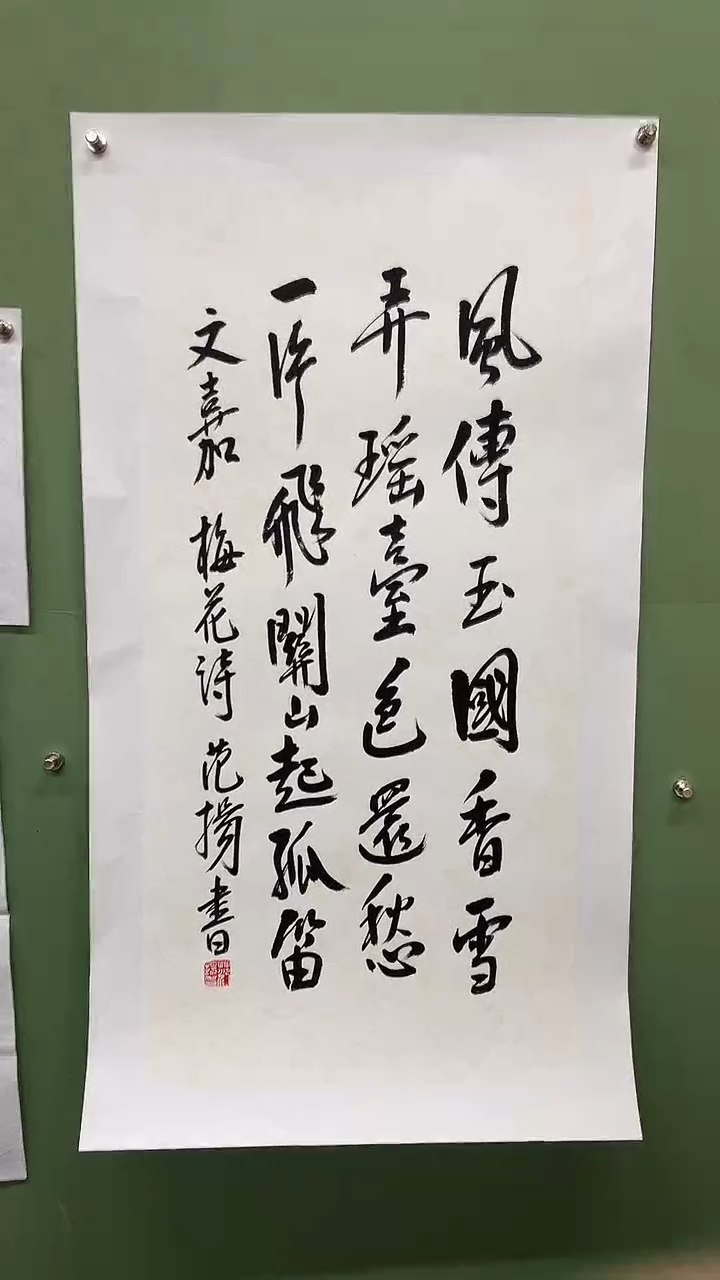 風傳玉國香雪
弄瑶臺色還愁
一片飛關山起孤笛
文嘉 梅花诗 范揚書